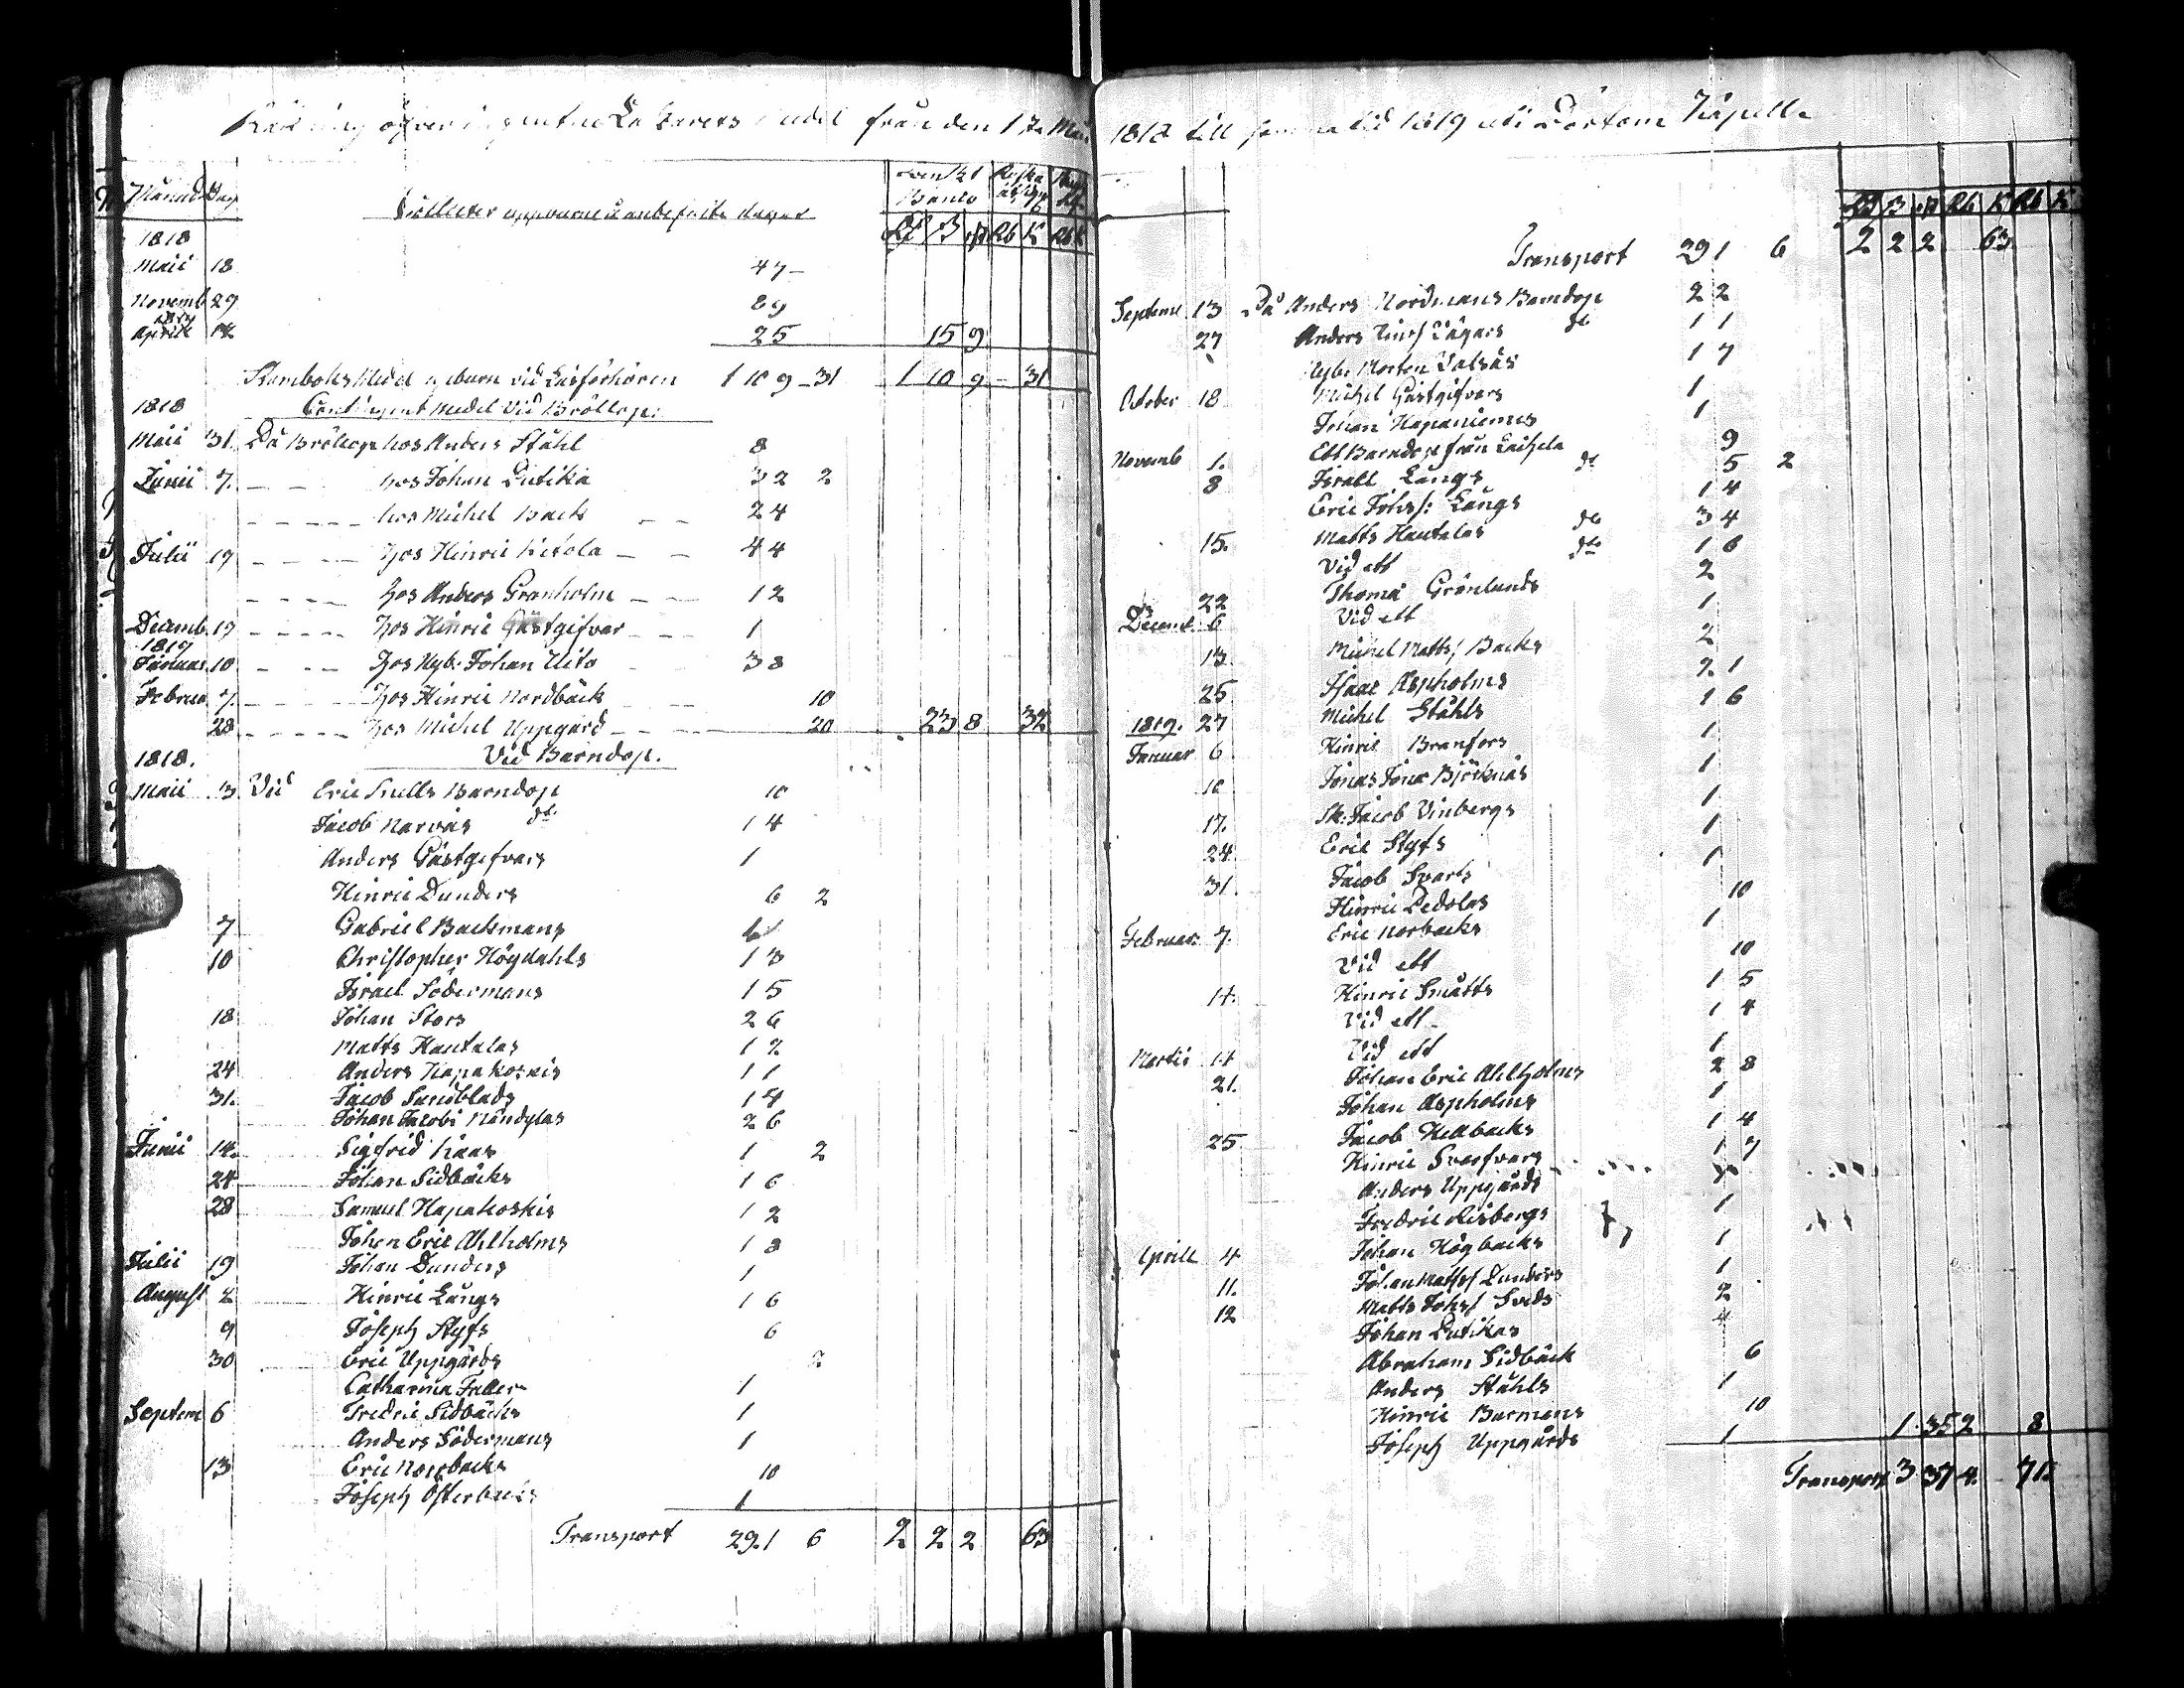 Räkning öfver Lazarets medel från den 1 Maii
Månad Dag Collecter uppburne å anbefalte dagar Banco
1818 Rd ß rst Rb K Rb K
Maii 18 47
Novemb 29 89
Aprill 12 25 15 9
Stamboks Medel vid Läsförhören 1 10 9 31 1 10 9 31
1818 Contingent Medel vid Bröllop:
Maii 31. Då Bröllop hos Anders Ståhl 8
Junii 7. hos Johan Lutika 32 2
hos Michel Back 24
Julii 19 hos Hinric Kitola 44
hos Anders Granholm 12
Decemb. 19 hos Hinric Gästgifvar 1
1819
Januar. 10 hos Nyb. Johan Uito 38
Februa 7. hos Hinric Nordbäck 10
28 hos Michel Uppgård 20 23 8 32
1818. Vid Barndop.
Maii 3 Vid Eric Snells Barndop 10
Jacob Narväs do 1 4
Anders Gästgifvars 1
Hinric Dunders 6 2
7 Gabriel Backmans
10 Christopher Högdahls 1 3
Israel Södermans 1 5
18 Johan Stors 2 6
Matts Hautalas 1 2
24 Anders Hapakoskis 1 1
31. Jacob Sandblads 1 4
Johan Jacobs Nändylas 2 6
Junii 14. Sigfrid Kaas 1 2
24 Johan Sidbäcks 1 6
28 Samuel Hapakoskis 1 2
Johan Eric Ahlholms 1 8
Julii 19 Johan Dunders 1
August 2 Hinric Långs 1 6
9 Joseph Styfs 6
30 Eric Uppgårds 2
Catharina Faller 1
Septem 6 Fredric Sidbäcks 1
Anders Södermans 1
13 Eric Norrbacks 10
Joseph Österbacks 1
Transport 29.1 6 2 2 2 63
1818 till samma tid 1819 uti Pörtom Kapell
Rd ß rst Rb K Rb K
Transport 29 1 6 2 2 2 63
Septemb 13 Då Anders Nordmans Barndop 2 2
27 Anders Jägars do 1 1
Nyb. Morten Dalsäs 1 7
October 18 Michel Gästgifvars 1
Johan Hapaniemes 1
Novemb 1. Ett Barndop från Laihela 9
8 Israel Långs do 5 2
Eric Johs/: Långs 1 4
15. Matts Hautalas do 3 4
Vid ett do 1 6
22 Thomä Grönlunds 2
Decemb. 6 Vid ett 1
13. Michel Matts/ Backs 2
25 Isaac Aspholms 2 1
1819. 27 Michel Ståhls 1 6
Januar 6 Hinric Branfors 1
10 Jonas Jonæ Björknäs 1
17. Sk: Jacob Vinbergs 1
24 Eric Styfs 1
31. Jacob Svarts 1
Hinric Pedolas 10
Februar. 7. Eric Norbacks 1
Vid ett 10
14. Hinric Smätts 1 5
Vid ett 1 4
Martii 14 Vid ett 1
21. Johan Eric Ahlholms 2 8
Johan Aspholms 1
25 Jacob Hellbacks 1 4
Hinric Svarfvars 1 7
Anders Uppgårds
Fredric Risbergs 1
Aprill 4 Johan Högbacks 1
11. Johan Matts/ Dunders 1
12 Matts Johs/ Sveds 2
Johan Lutikas 4
Abraham Sidbäck 6
Anders Ståhls 1
Hinric Barmans 10
Joseph Uppgårds 1 1. 35 2 8
Transport 3 37 4 71